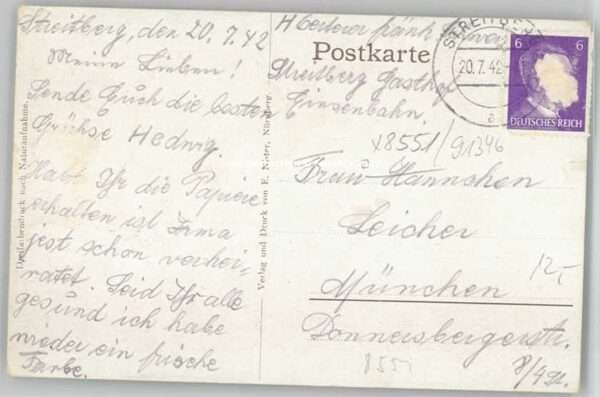 Streitberg, den 20.7.42
Meine Lieben!
Sende Euch die besten
Grüchse Hedwig.
Habt Ihr die Papiere
erhalten ist Irma
jest schon verhei-
ratet. Seid Ihr alle
gesund ich habe
wieder ein frische
Farbe.
Dreifarbendruck nach Naturaufnahme.
Verlag und Druck von E. Nister, Nürnberg
fränk.
Postkarte
Streitberg Gasthof
Eisenbahn.
STREITBE
20.7.42
a
6 6
DEUTSCHES REICH
x8551/91346
Frau Hannchen
Leicher
München
12,-
Donnersbergerstr.
8551